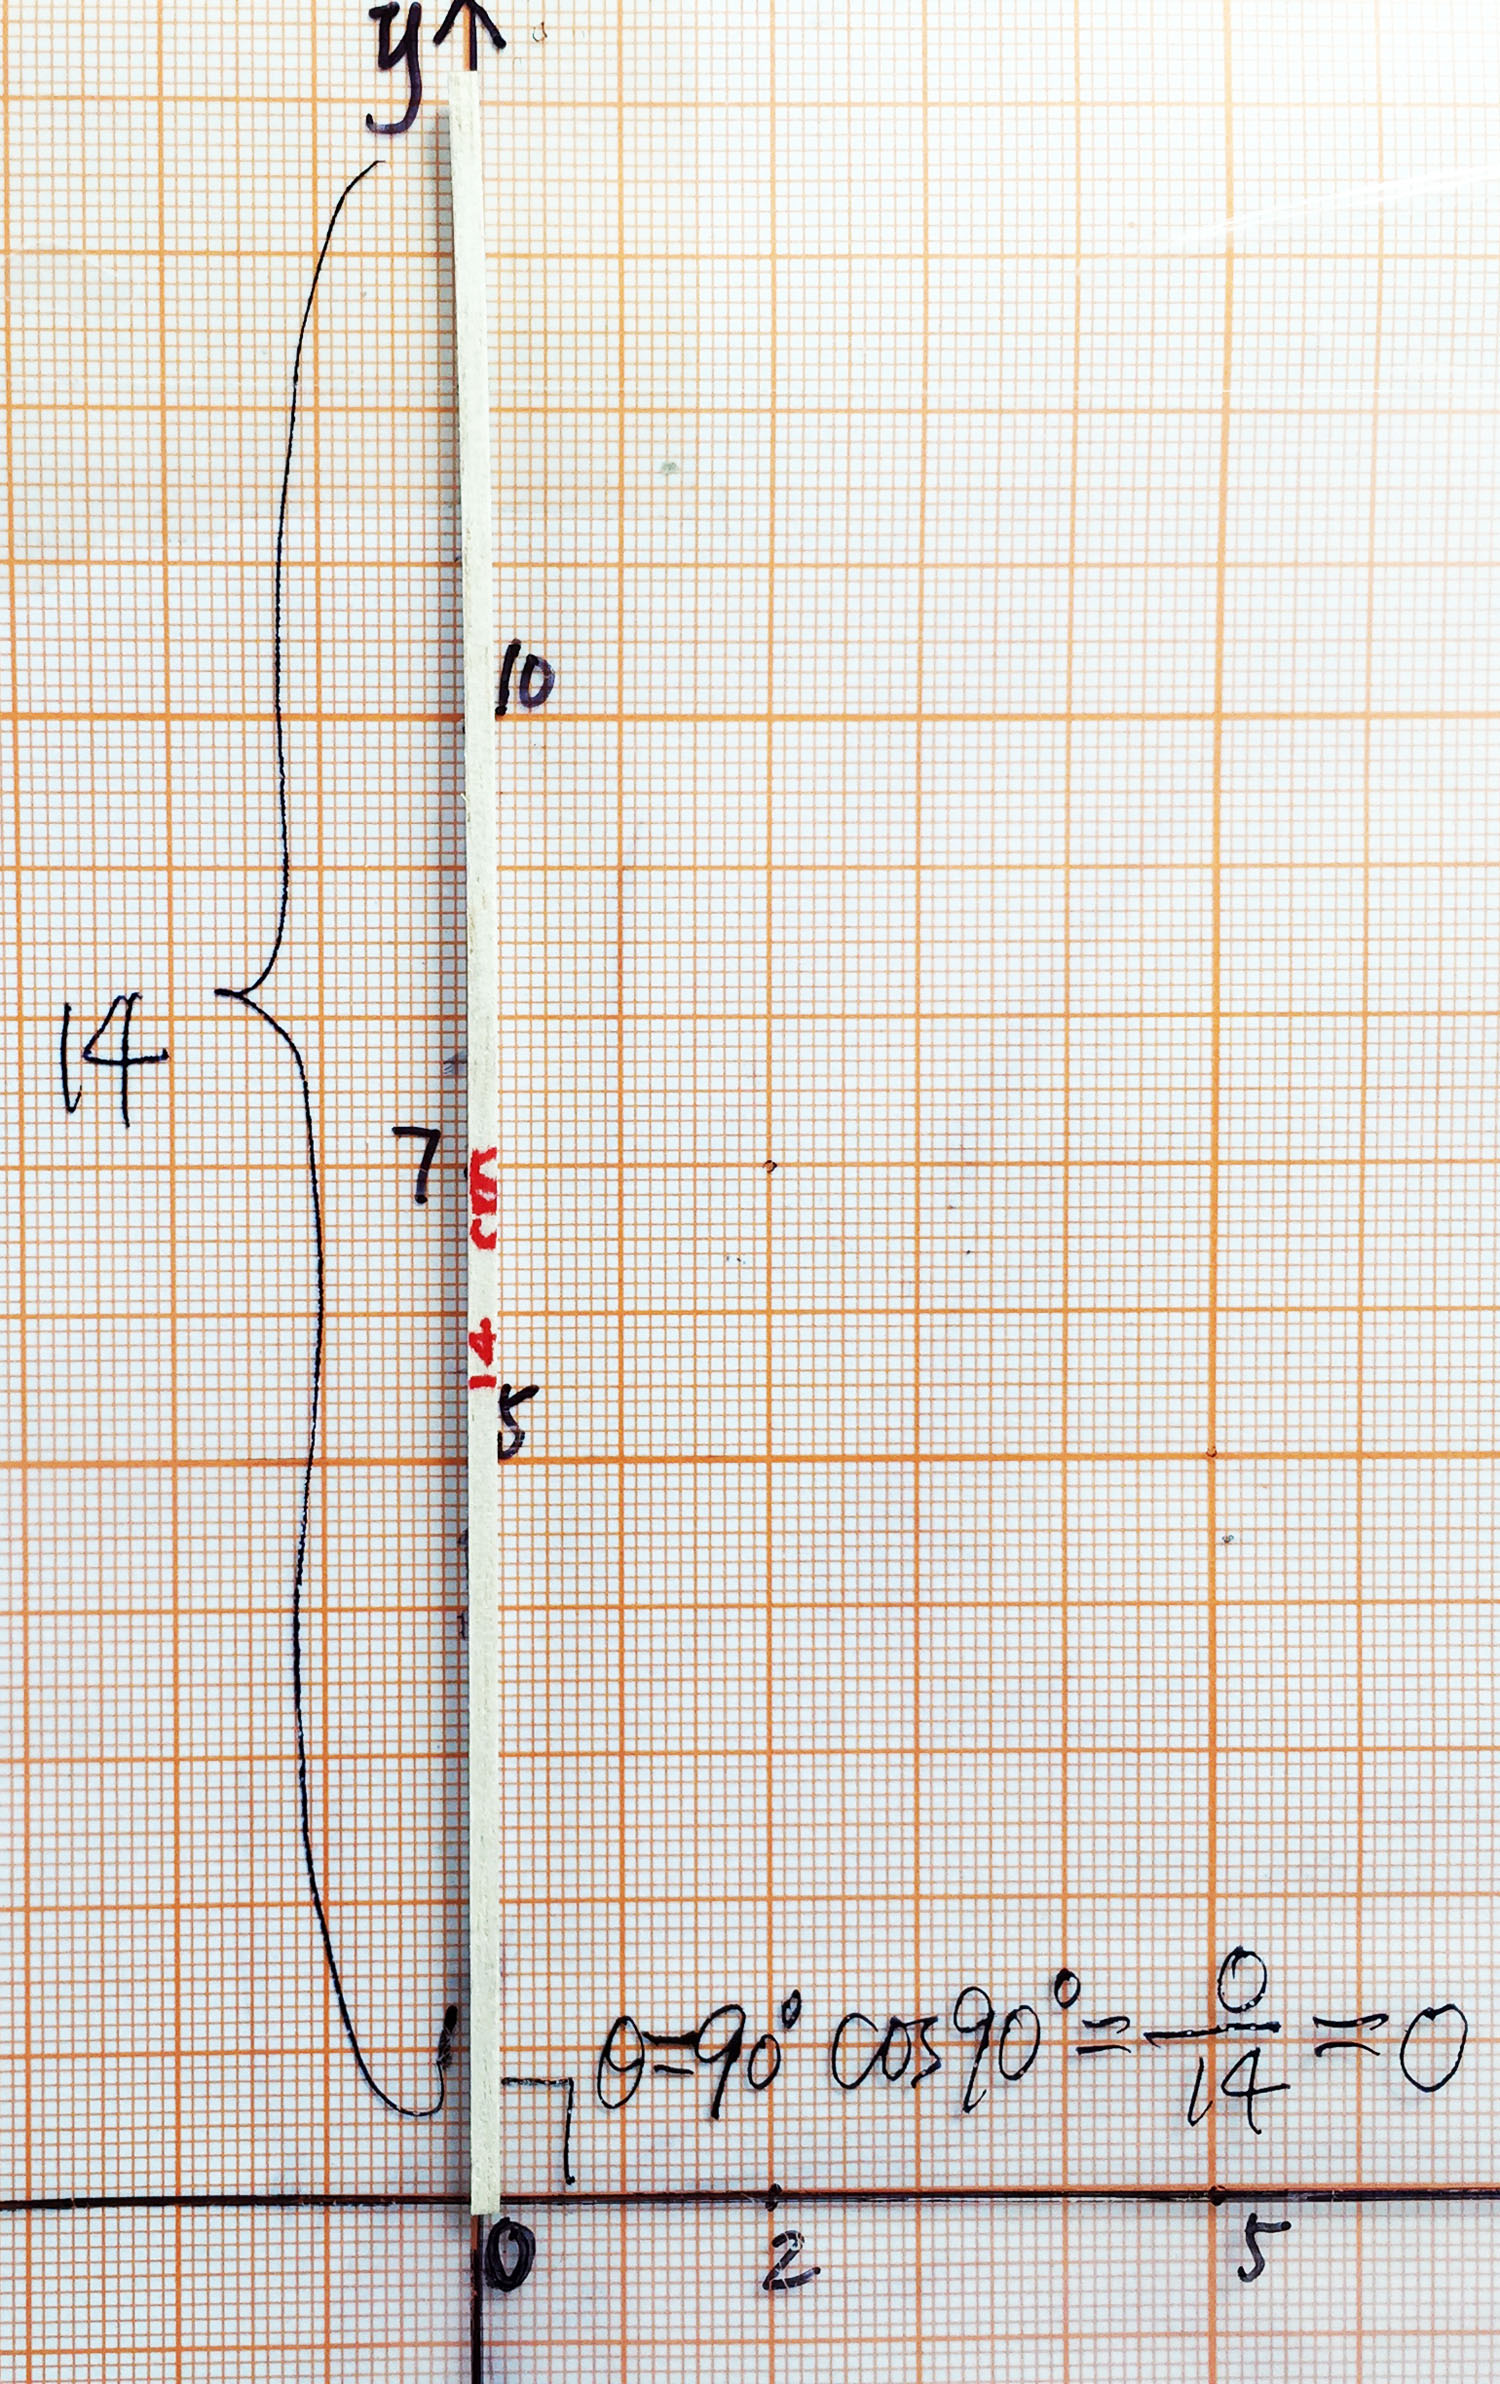 y
10
14
7
14 cm
5
θ=90° cos90°=0/14=0
0
2
5